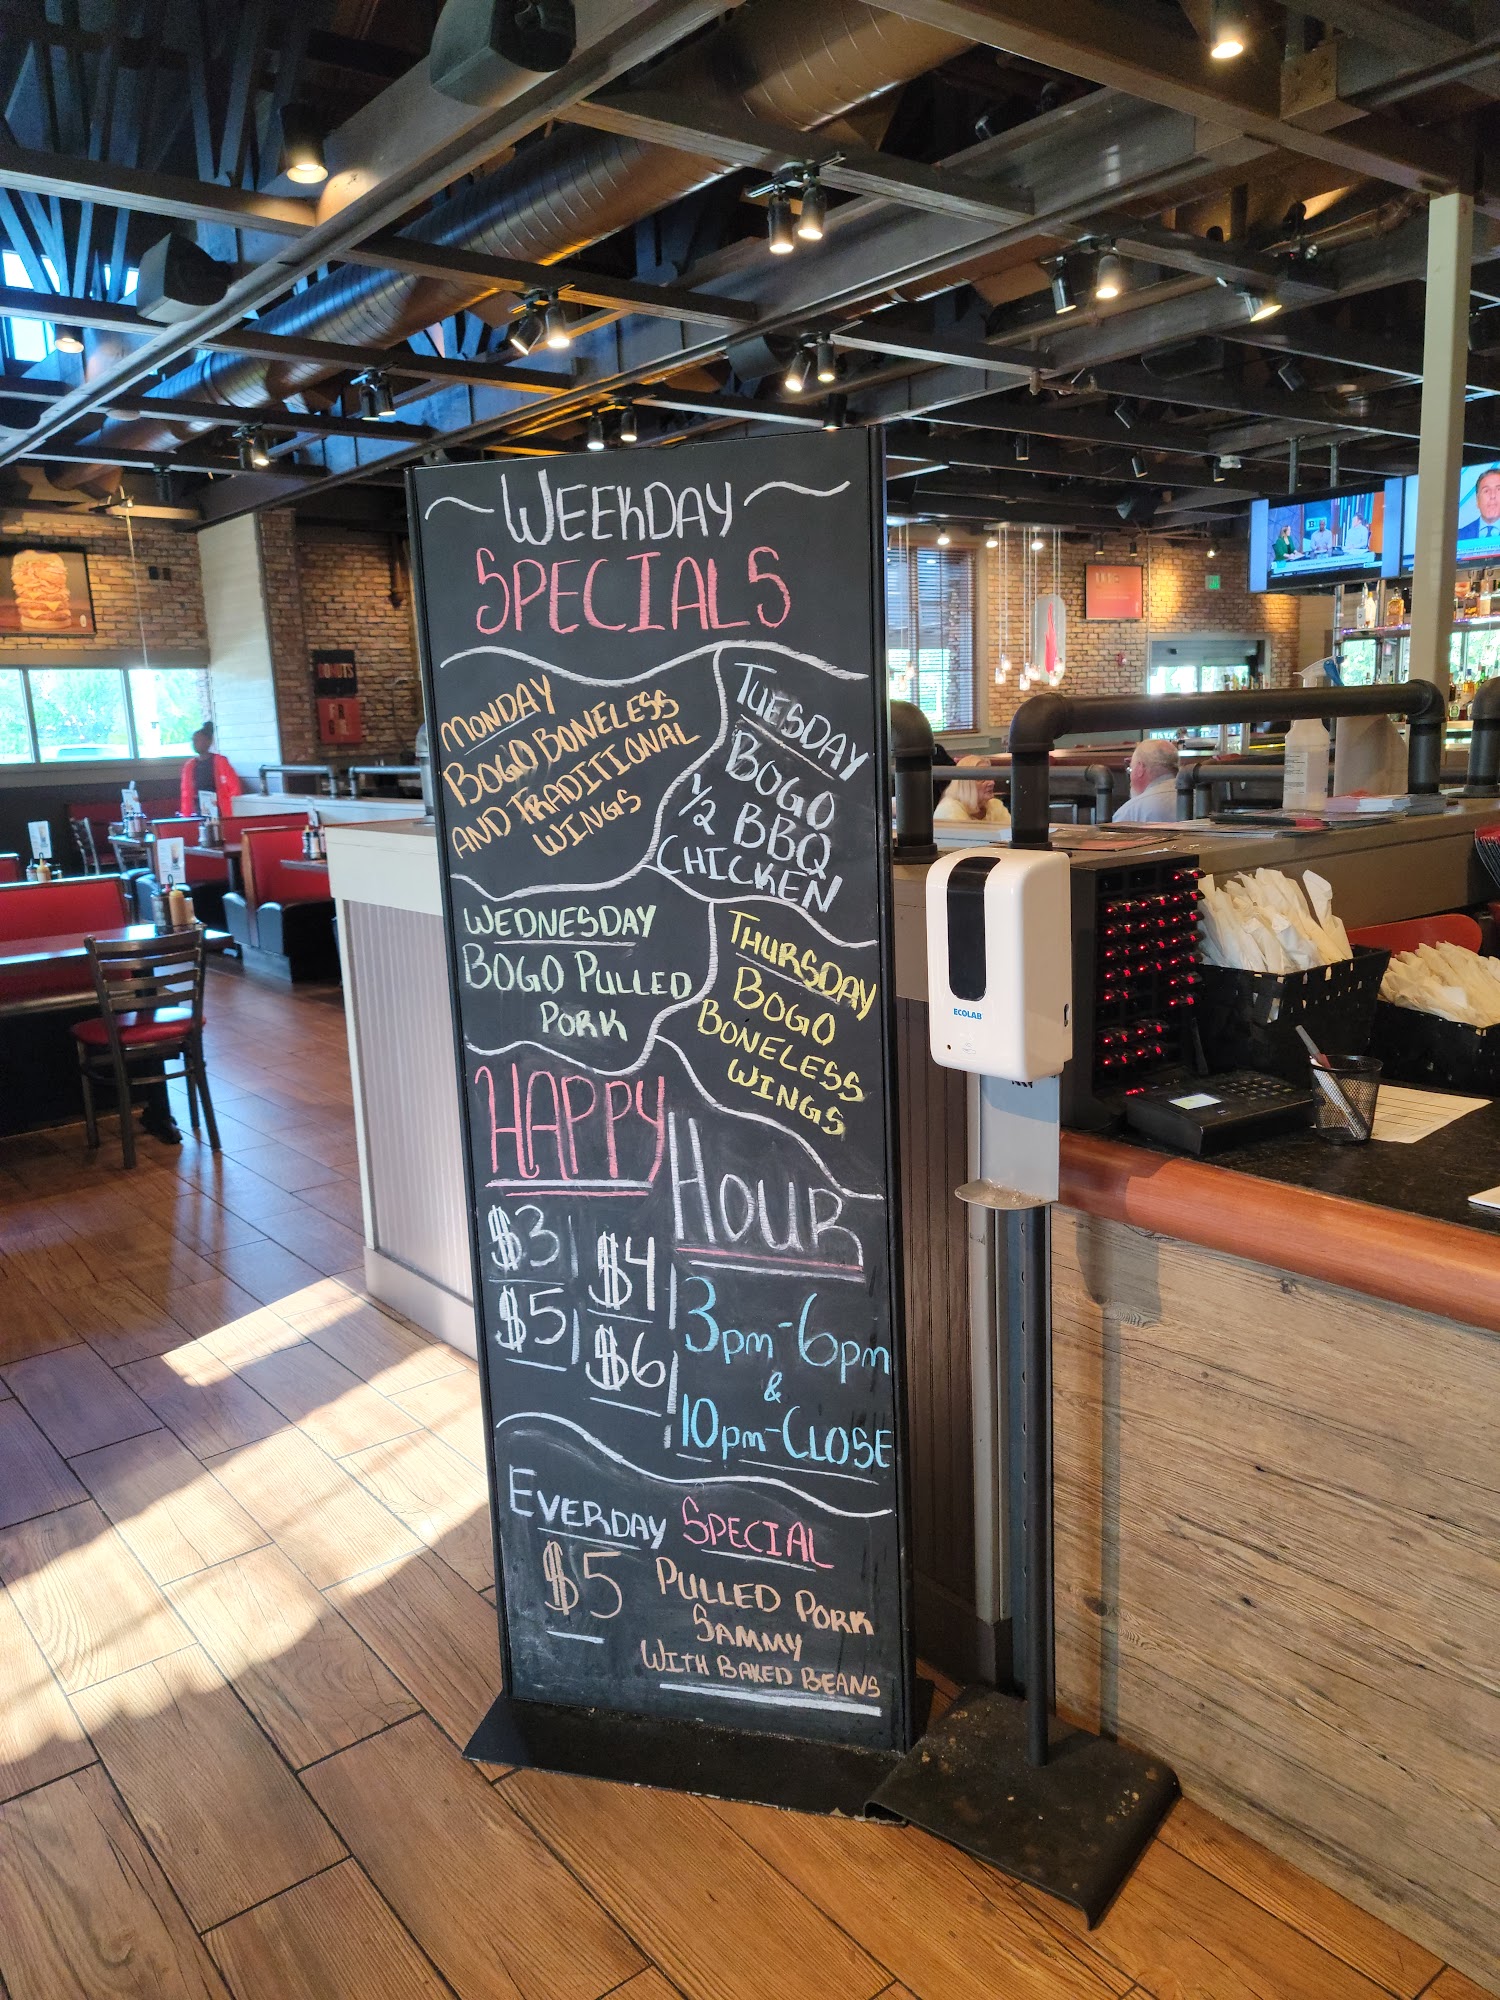 ~WEEKDAY~
SPECIALS
MONDAY
BOGO BONELESS
AND TRADITIONAL
WINGS
TUESDAY
BOGO
1/2 BBQ
CHICKEN
WEDNESDAY
BOGO PULLED
PORK
THURSDAY
BOGO
BONELESS
WINGS
HAPPY
HOUR
$3 $4
$5 $6
3pm-6pm
&
10pm-CLOSE
EVERDAY SPECIAL
$5 PULLED PORK
SAMMY
WITH BAKED BEANS
ECOLAB
DONUTS